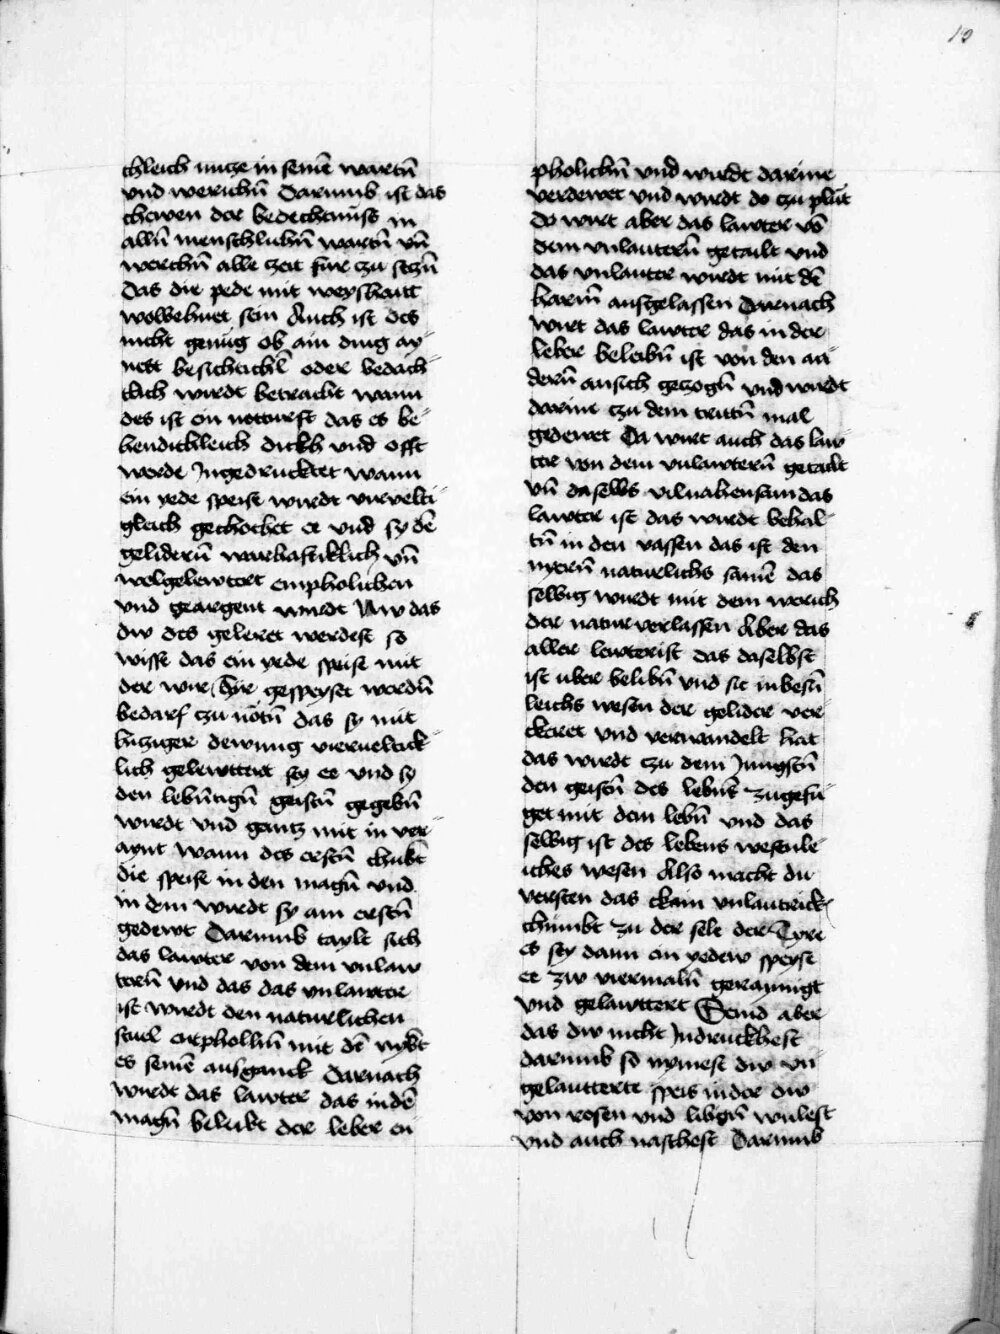 19
chleich nucze in seinē wartn̄
vnd werichn̄ Darumb ist das
chewen der bedechtnuss in
alln̄ menschlichn̄ wartn̄ vn̄
werchn̄ alle zeit für czu seczn̄
Das die rede mit weyshait
wolbekuet sein Auch ist des
nicht genüg ob ain ding ay
nest besichtichl̄ oder bedach
tlich wirdt betracht wann
des ist ein notturft das es be
hendichleich dickh vnd offt
werde Ingedrucktet wann
ein yede speise wirdt virvelti
gleich gechochet ee vnd sy dē
geliderñ warhaftiklich vn̄
wolgelewtert empholichen
vnd geargent wirdt Nw das
dw des geleret werdest so
wisse das ein yede speise mit
der wir hye gespeyset werdn̄
bedarf czu nötn̄ das sy mit
hicziger dewung vierveltick
lich gelewttert sey ee vnd sy
den lebn̄tign̄ geistn̄ gegebn̄
wirdt vnd gantz mit in ver
aynt wann des erstn̄ chubt̄
die speise in den magn̄ vnd
in dem wirdt sy am erstn̄
gedewt Darumb taylt sich
das lawter von dem vnlaw
tern̄ vnd das das vnlawter
ist wirdt den naturlichen
stuel enpholhn̄ mit dē nymt
es seinē ausganck Darnach
wirdt das lawter das in dē
magn̄ beleibt der leber en
pholichn̄ vnd wirdt darinne
verdewet vnd wirdt do czu plüt
Do wirt aber das lawter vō
dem vnlautern̄ getailt vnd
das vnlauter wirdt mit dē
harm̄ ausgelassen Darnach
wirt das lawter das in der
leber beleibn̄ ist von den aa
dern̄ ansich geczogn̄ vnd wirdt
darine czu dem trittn̄ mal
gedewet Da wirt auch das law
ter von dem vnlawtern̄ getailt
vn̄ daselbs
lawter ist das wirdt behal
tn̄ in den vassen das ist den
nyern̄ naturlichs samē das
selbig wirdt mit dem werich
der natur verlassen Aber das
aller lewterist das daselbst
ist uber belibn̄ vnd sic in
leichs wesen der gelider ver
ckeret vnd verwandelt hat
das wirdt czu dem Jungstn̄
den geistn̄ des lebn̄s zugefu
get mit dem lebn̄ vnd das
selbig ist des lebens wesenle
iches wesen Also macht du
versten das ckain vnlautrick
chümbt zu der sele der Tyre
es sey dann ein yedew speyse
ee zw viermaln̄ geraynigt
vnd gelawttert Seind aber
das dw nicht Indruckhest
darumb so nymest dw vn
gelautterte speis in der dw
von rosen vnd libgn̄ wilest
vnd auch naschest Darumb